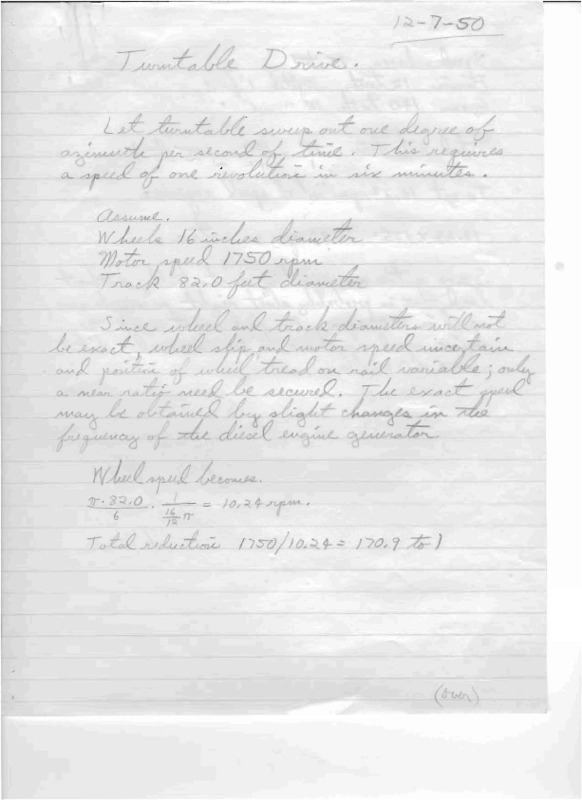 12-7-50
Turntable Drive.
Let turntable sweep out one degree of
azimuth per second of time. This requires
a speed of one revolution in six minutes.
Assume.
Wheels 16 inches diameter
Motor speed 1750 rpm
Track 82.0 feet diameter
Since wheel and track diameters will not
be exact, wheel slip and motor speed uncertain
and position of wheel tread on rail variable; only
a near ratio need be secured. The exact speed
may be obtained by slight changes in the
frequency of the diesel engine generator
Wheel speed becomes.
π·82.0/6 · 1/(16/12 π) = 10.24 rpm.
Total reduction 1750/10.24 = 170.9 to 1
(over)